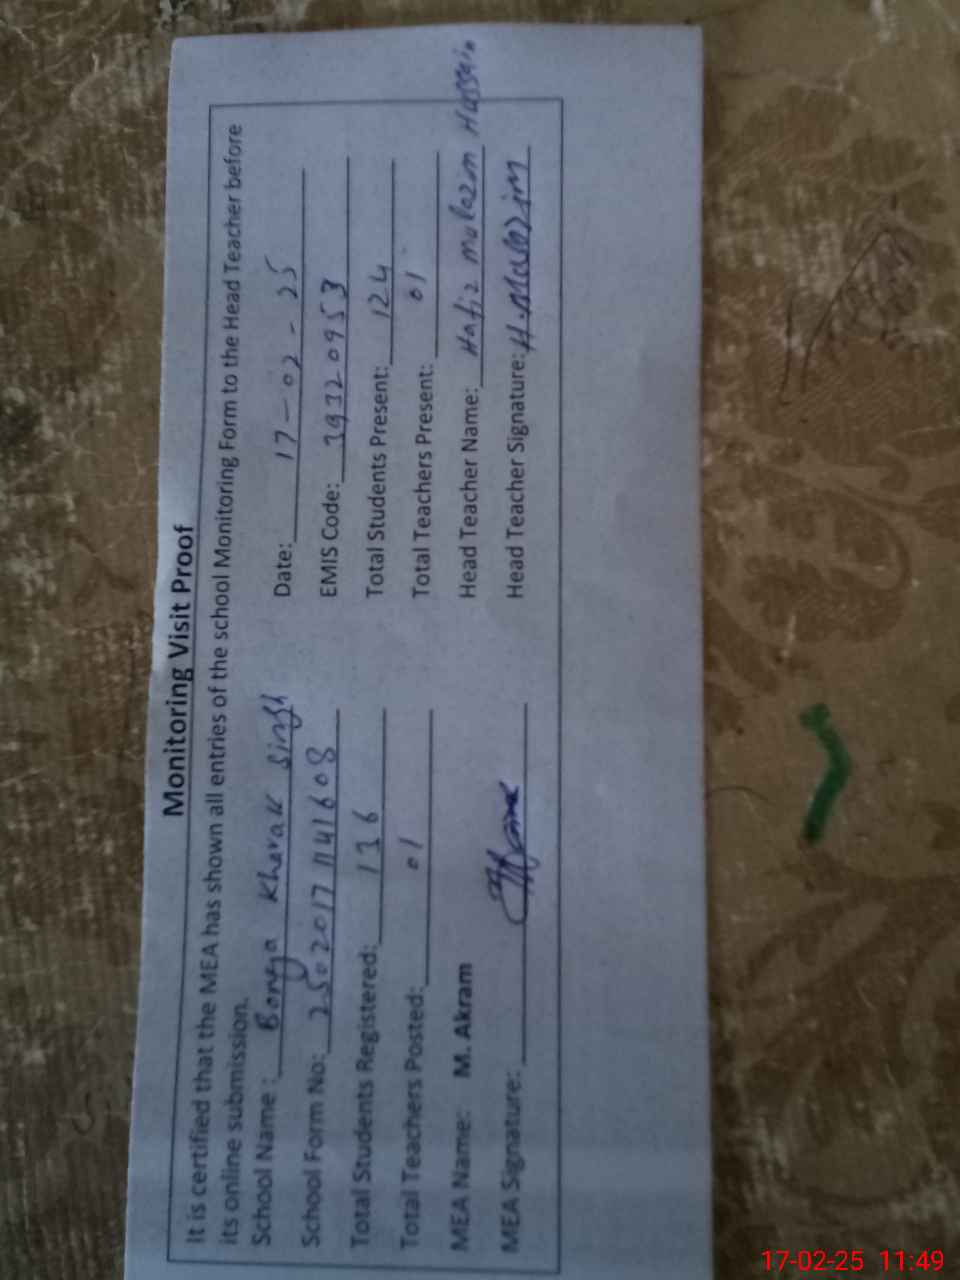 Monitoring Visit Proof
It is certified that the MEA has shown all entries of the school Monitoring Form to the Head Teacher before
its online submission.
School Name: Bonga Kharak Singh Date: 17-02-25
School Form No: 25020171141608 EMIS Code: 39320953
Total Students Registered: 136 Total Students Present: 124
Total Teachers Posted: 01 Total Teachers Present: 01
MEA Name: M. Akram Head Teacher Name: Hafiz Mulazm Hussain
MEA Signature: Head Teacher Signature: H.Mulazim
17-02-25 11:49